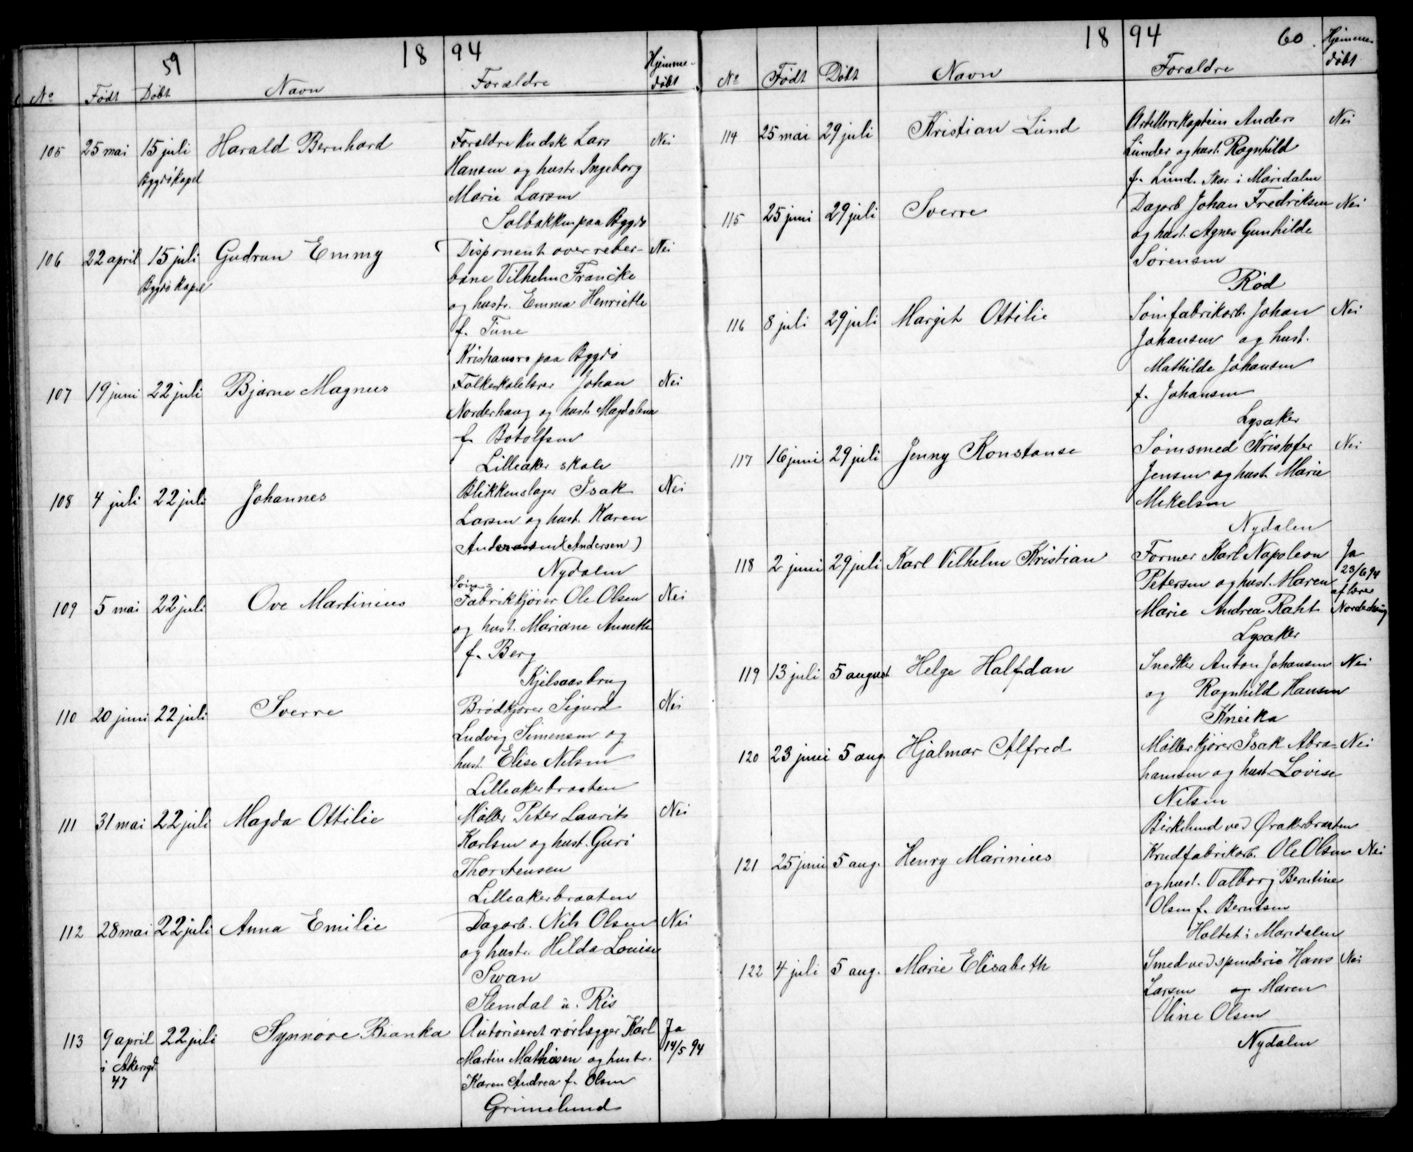 59 18 94
No Født Døbt Navn Forældre Hjemme-
døbt
105 25 mai 15 juli Harald Bernhard Forældre Kudsk Lars Nei
Bygdø Kapel Hansen og hustr. Ingeborg
Marie Larsen
Solbakken paa Bygdø
106 22 april 15 juli Gudrun Emmy Disponent over reber- Nei
Bygdø Kapel bane Vilhelm Francke
og hustr. Emma Henriette
f. Tune
paa Bygdø
107 19 juni 22 juli Bjarne Magnus Folkeskolelærer Johan Nei
Norderhaug og hust. Magdalena
f. Botolfsen
Lilleaker skole
108 4 juli 22 juli Johannes Blikkenslager Isak Nei
Larsen og hust. Karen
(Andersen)
Nydalen
109 5 mai 22 juli Ove Martinius Søm-
Fabrikkjører Ole Olsen Nei
og hust. Mariane Annette
f. Berg
Kjelsaasbrug
110 20 juni 22 juli Sverre Brødkjører Sigurd Nei
Ludvig Simensen og
hust. Elise Nilsen
Lilleakerbraaten
111 31 mai 22 juli Magda Ottilie Møller Peter Laurits Nei
Karlsen og hust. Guri
Thorstensen
Lilleakerbraaten
112 28 mai 22 juli Anna Emilie Dagarb. Nils Olsen Nei
og hustr. Hilda Louise
Swan
Slemdal u. Ris
113 9 april 22 juli Synnøve Bianka Autoriseret rørlægger Karl Ja
i Akersgd Martin Mathisen og hustr. 14/5 94
47 Karen Andrea f. Olsen
Grimelund
18 94 60
No Født Døbt Navn Forældre Hjemme-
døbt
114 25 mai 29 juli Kristian Lund Artillerikaptein Anders Nei
Lunder og hust. Ragnhild
f. Lund. Skar i Maridalen
115 25 juni 29 juli Sverre Dagarb Johan Fredriksen Nei
og hust. Agnes Gunhilde
Sørensen
Rød
116 8 juli 29 juli Margit Ottilie Sømfabrikarb. Johan Nei
Johansen og hust.
Mathilde Johansen
f. Johansen
Lysaker
117 16 juni 29 juli Jenny Konstanse Sømsmed Kristofer Nei
Jensen og hust. Marie
Mikelsen
Nydalen
118 2 juni 29 juli Karl Vilhelm Kristian Former Karl Napoleon Ja
Petersen og hust. Maren 23/6 94
Marie Andrea Raht af lærer
Lysaker Norderhaug
119 13 juli 5 august Helge Halfdan Snedker Anton Johansen Nei
og Ragnhild Hansen
120 23 juni 5 aug. Hjalmar Alfred Møllerkjører Isak Abra- Nei
hamsen og hust. Lovise
Nilsen
Birkelund ved Ørakerbraaten
121 25 juni 5 aug. Henry Marinius Krudfabrikarb. Ole Olsen Nei
og hust. Valborg Berntine
Olsen f. Berntsen
Holtet i Maridalen
122 4 juli 5 aug. Marie Elisabeth Smed ved spinderie Hans Nei
Larsen og Maren
Oline Olsen
Nydalen